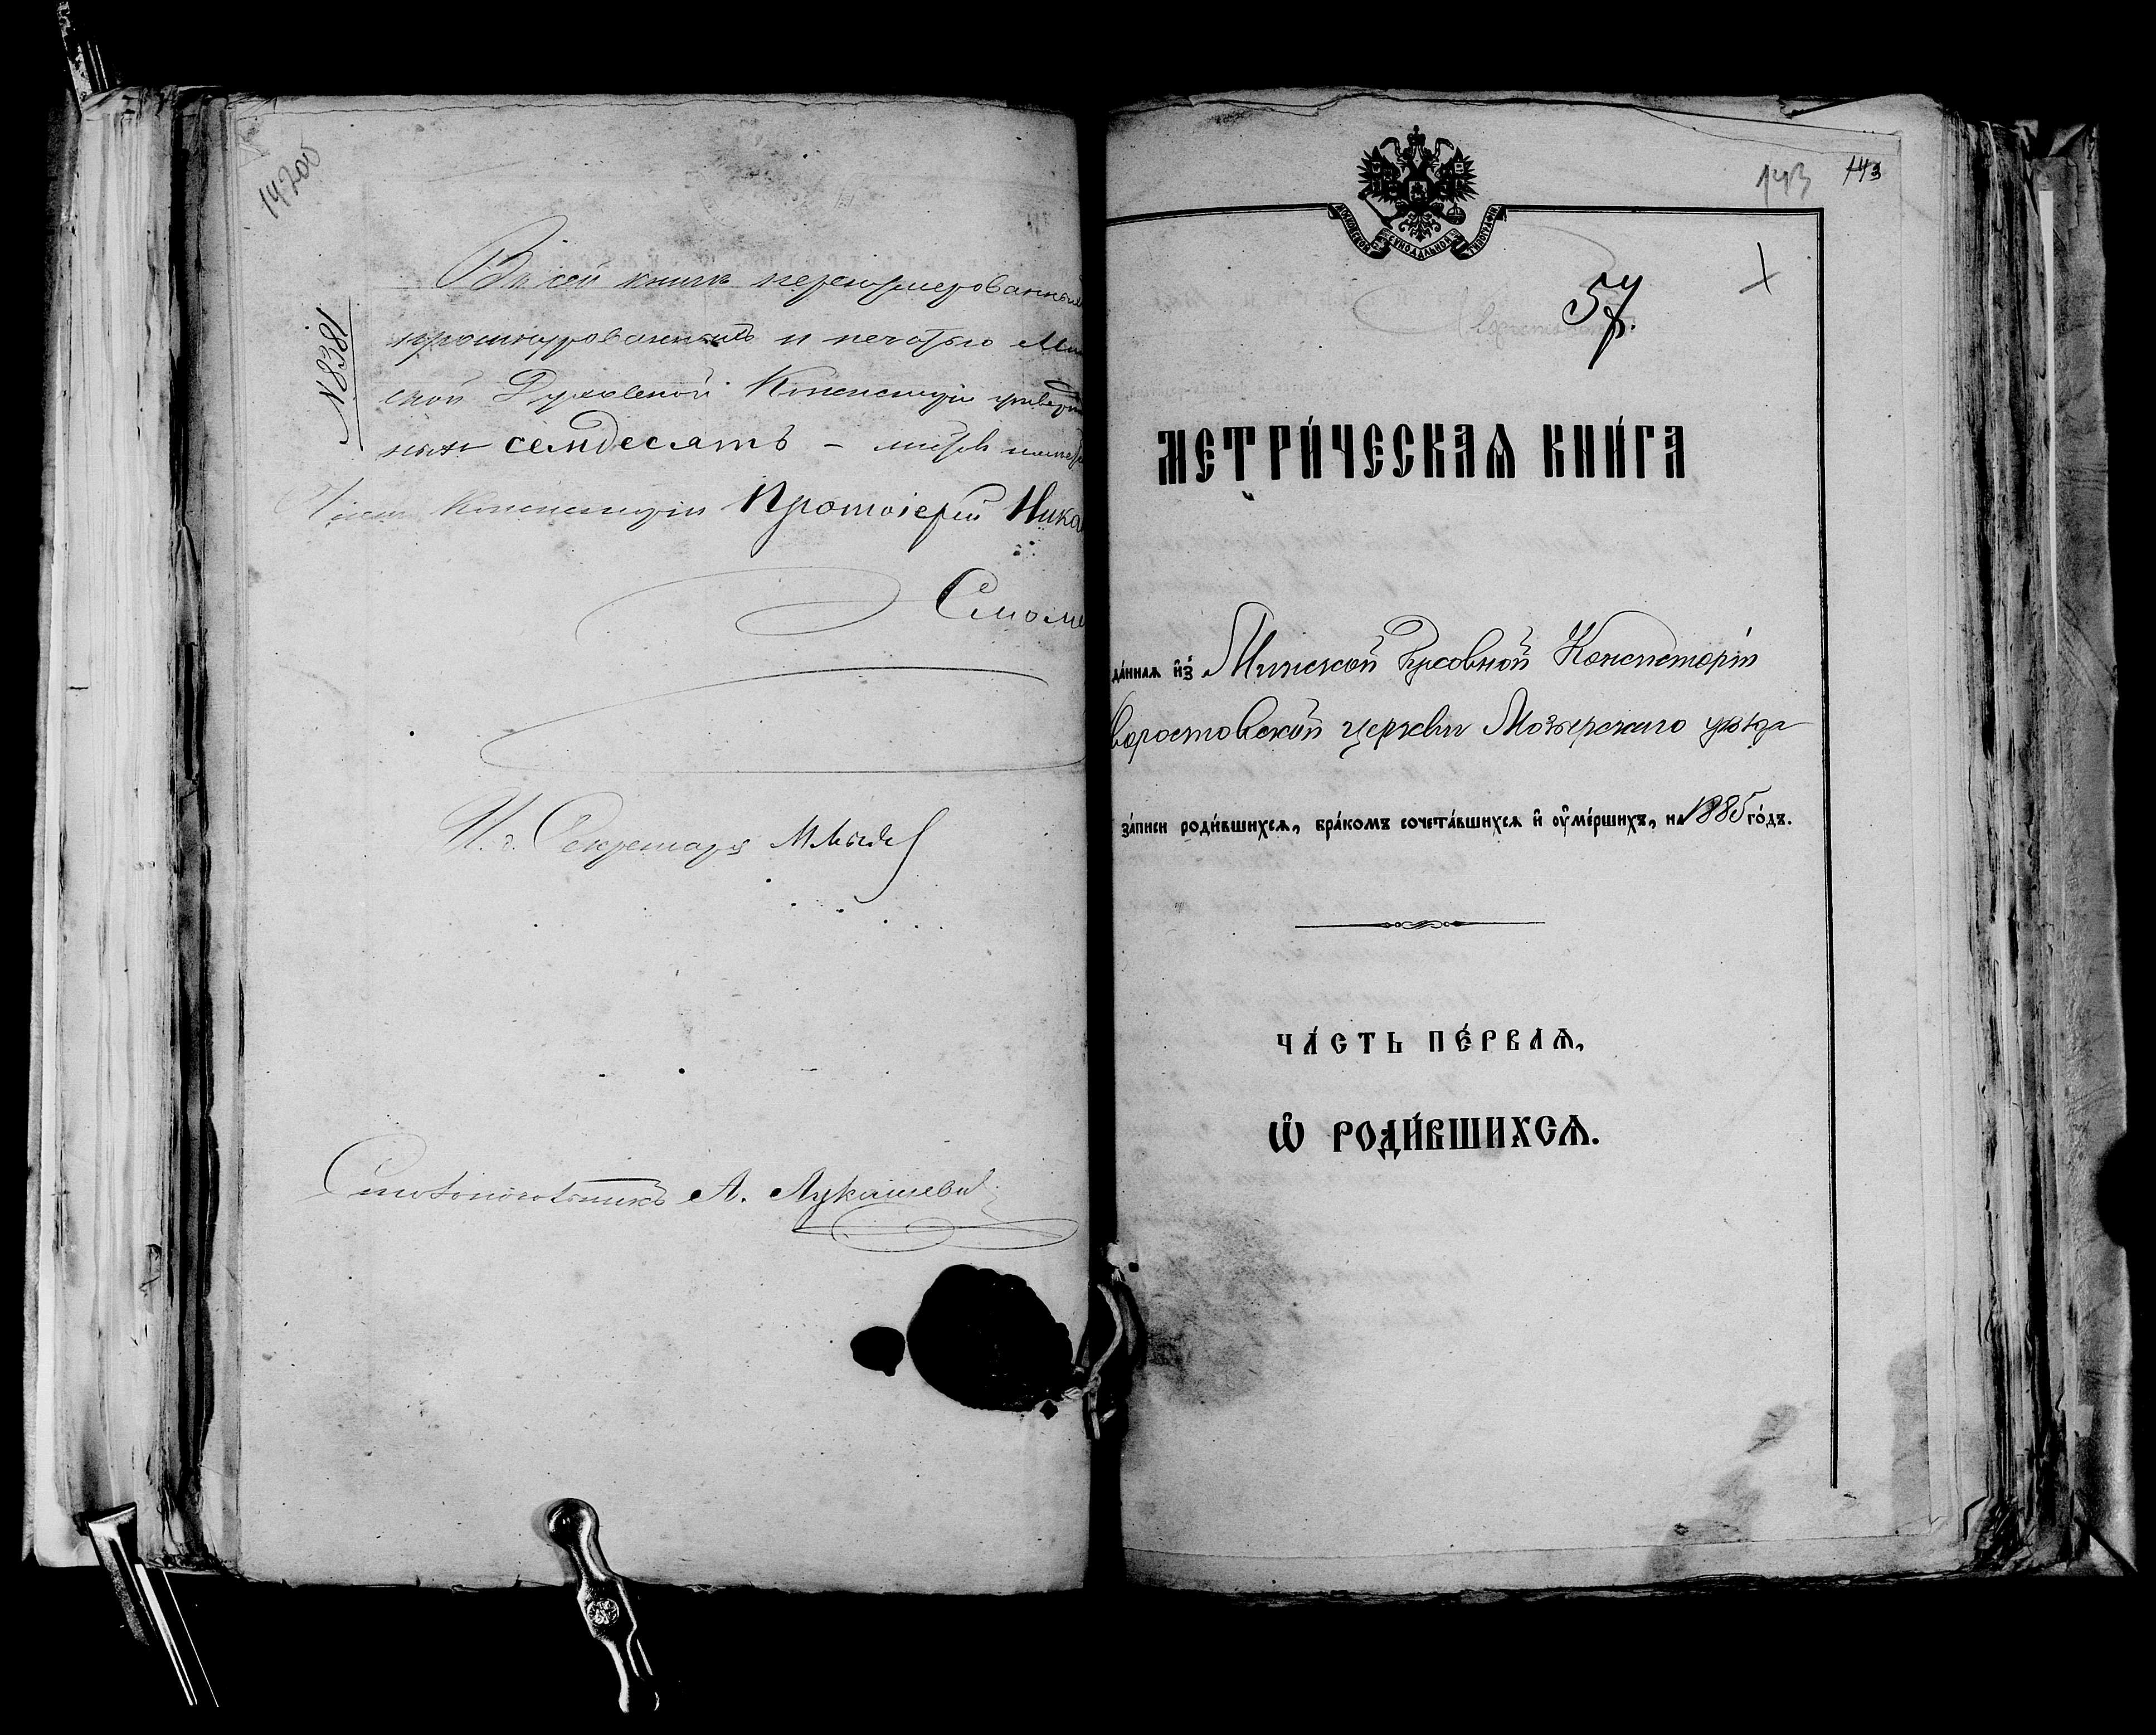 14200
№ 8381
Въ сей книгѣ перенумерованныхъ
прошнурованныхъ и печатью Мин
ской Духовной Консисторіи утверж
ныхъ семдесятъ – листовъ
Членъ Консисторіи Протоіерей Нико
Смол
И. д. Секретаря
Столоначальникъ А. Лукашевич
143 143
МОСКОВСКОЙ СѴНОДАЛЬНОЙ ТИПОГРАФІИ
57.
МЕТРИ́ЧЕСКАѦ КНИ́ГА
да́ннаѧ и҆з̾ Минской Духовной Консисторіи
воростовской церкви Мозырскаго уѣзда
за́писи роди́вшихсѧ, бра́комъ сочета́вшихсѧ и҆ ᲂу҆ме́ршихъ, на 1885 го́дъ.
ЧА́СТЬ ПЕ́РВАѦ,
Ѡ҆ РОДИ́ВШИХСѦ.